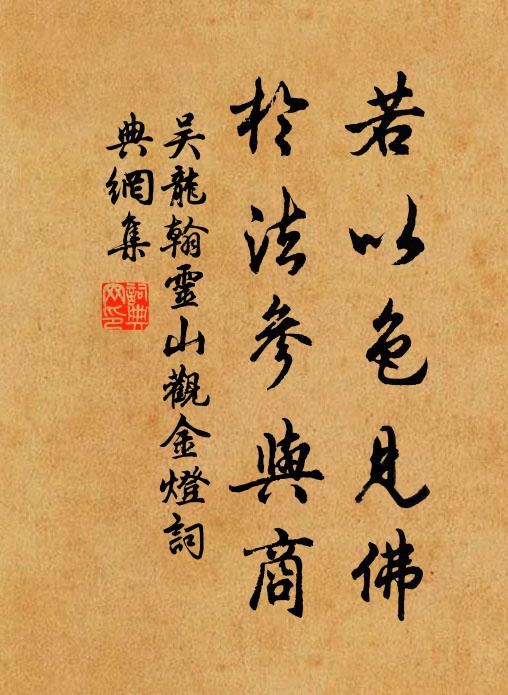 若以色見佛
於法參與商
吴龍翰靈山觀金燈詞
典網集
詞典
网印